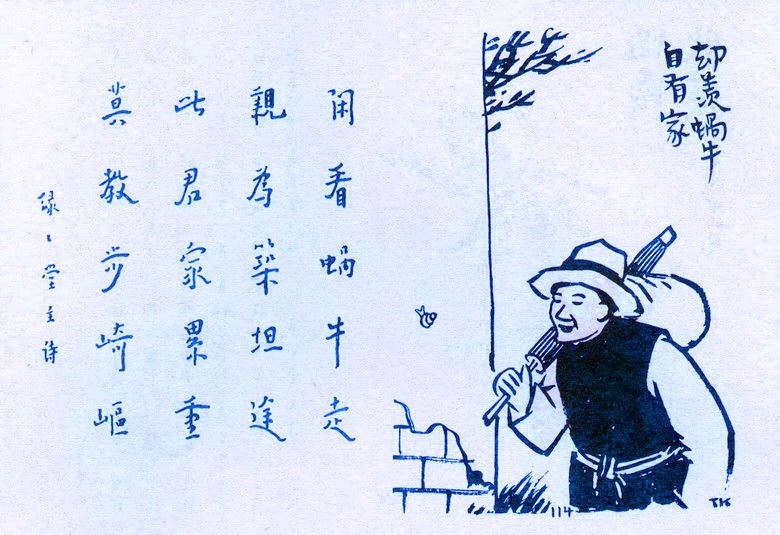 却羡蝸牛
自有家
閑看蝸牛走
親為築坦途
此君家累重
莫教步崎嶇
緣緣堂主詩
114
TK